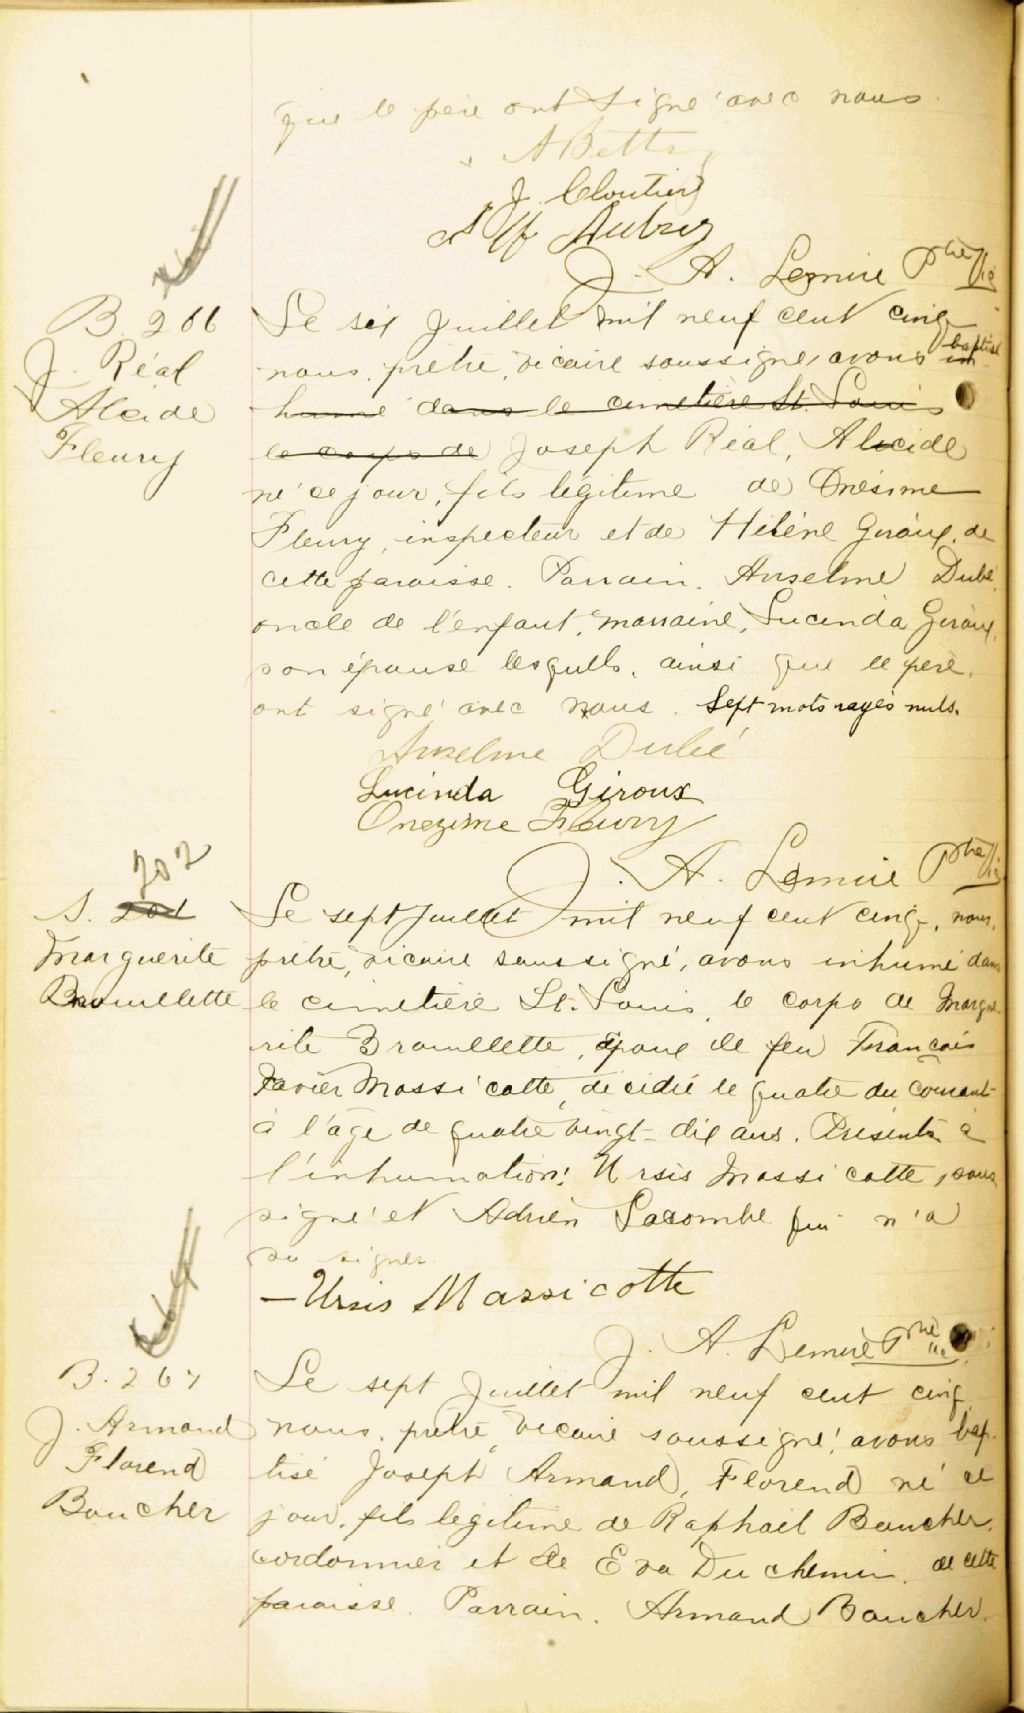 que le père ont signé avec nous.
A Bettez
J. Cloutier
Alf Aubry
J. A. Lemire Ptre Vic
B. 266
J. Réal
Alcide
Fleury
Le six Juillet mil neuf cent cinq
nous, prêtre, vicaire soussigné, avons baptisé in-
humé dans le cimetière St. Louis
le corps de Joseph Réal, Alcide
né ce jour, fils légitime de Onésime
Fleury, inspecteur et de Hélène Giroux, de
cette paroisse. Parrain. Anselme Dubé,
oncle de l'enfant, marraine, Lucinda Giroux,
son épouse lesquels, ainsi que le père,
ont signé avec nous. Sept mots rayés nuls.
Anselme Dubé
Lucinda Giroux
Onezime Fleury
J. A. Lemire Ptre Vic
202
S. 201
Marguerite
Brouillette
Le sept Juillet mil neuf cent cinq, nous,
prêtre, vicaire soussigné, avons inhumé dans
le cimetière St. Louis, le corps de Margue-
rite Brouillette, épouse de feu François
Xavier Massicotte, décédée le quatre du courant
à l'âge de quatre vingt-dix ans. Présents à
l'inhumation: Ursis Massicotte, sous
signé et Adrien Lacombe qui n'a
su signer.
Ursis Massicotte
J. A. Lemire Ptre Vic
B. 267
J. Armand
Florend
Boucher
Le sept Juillet mil neuf cent cinq
nous, prêtre, vicaire soussigné, avons bap-
tisé Joseph Armand, Florend né ce
jour, fils légitime de Raphaël Boucher,
cordonnier et de Eva Duchemin, de cette
paroisse. Parrain. Armand Boucher,